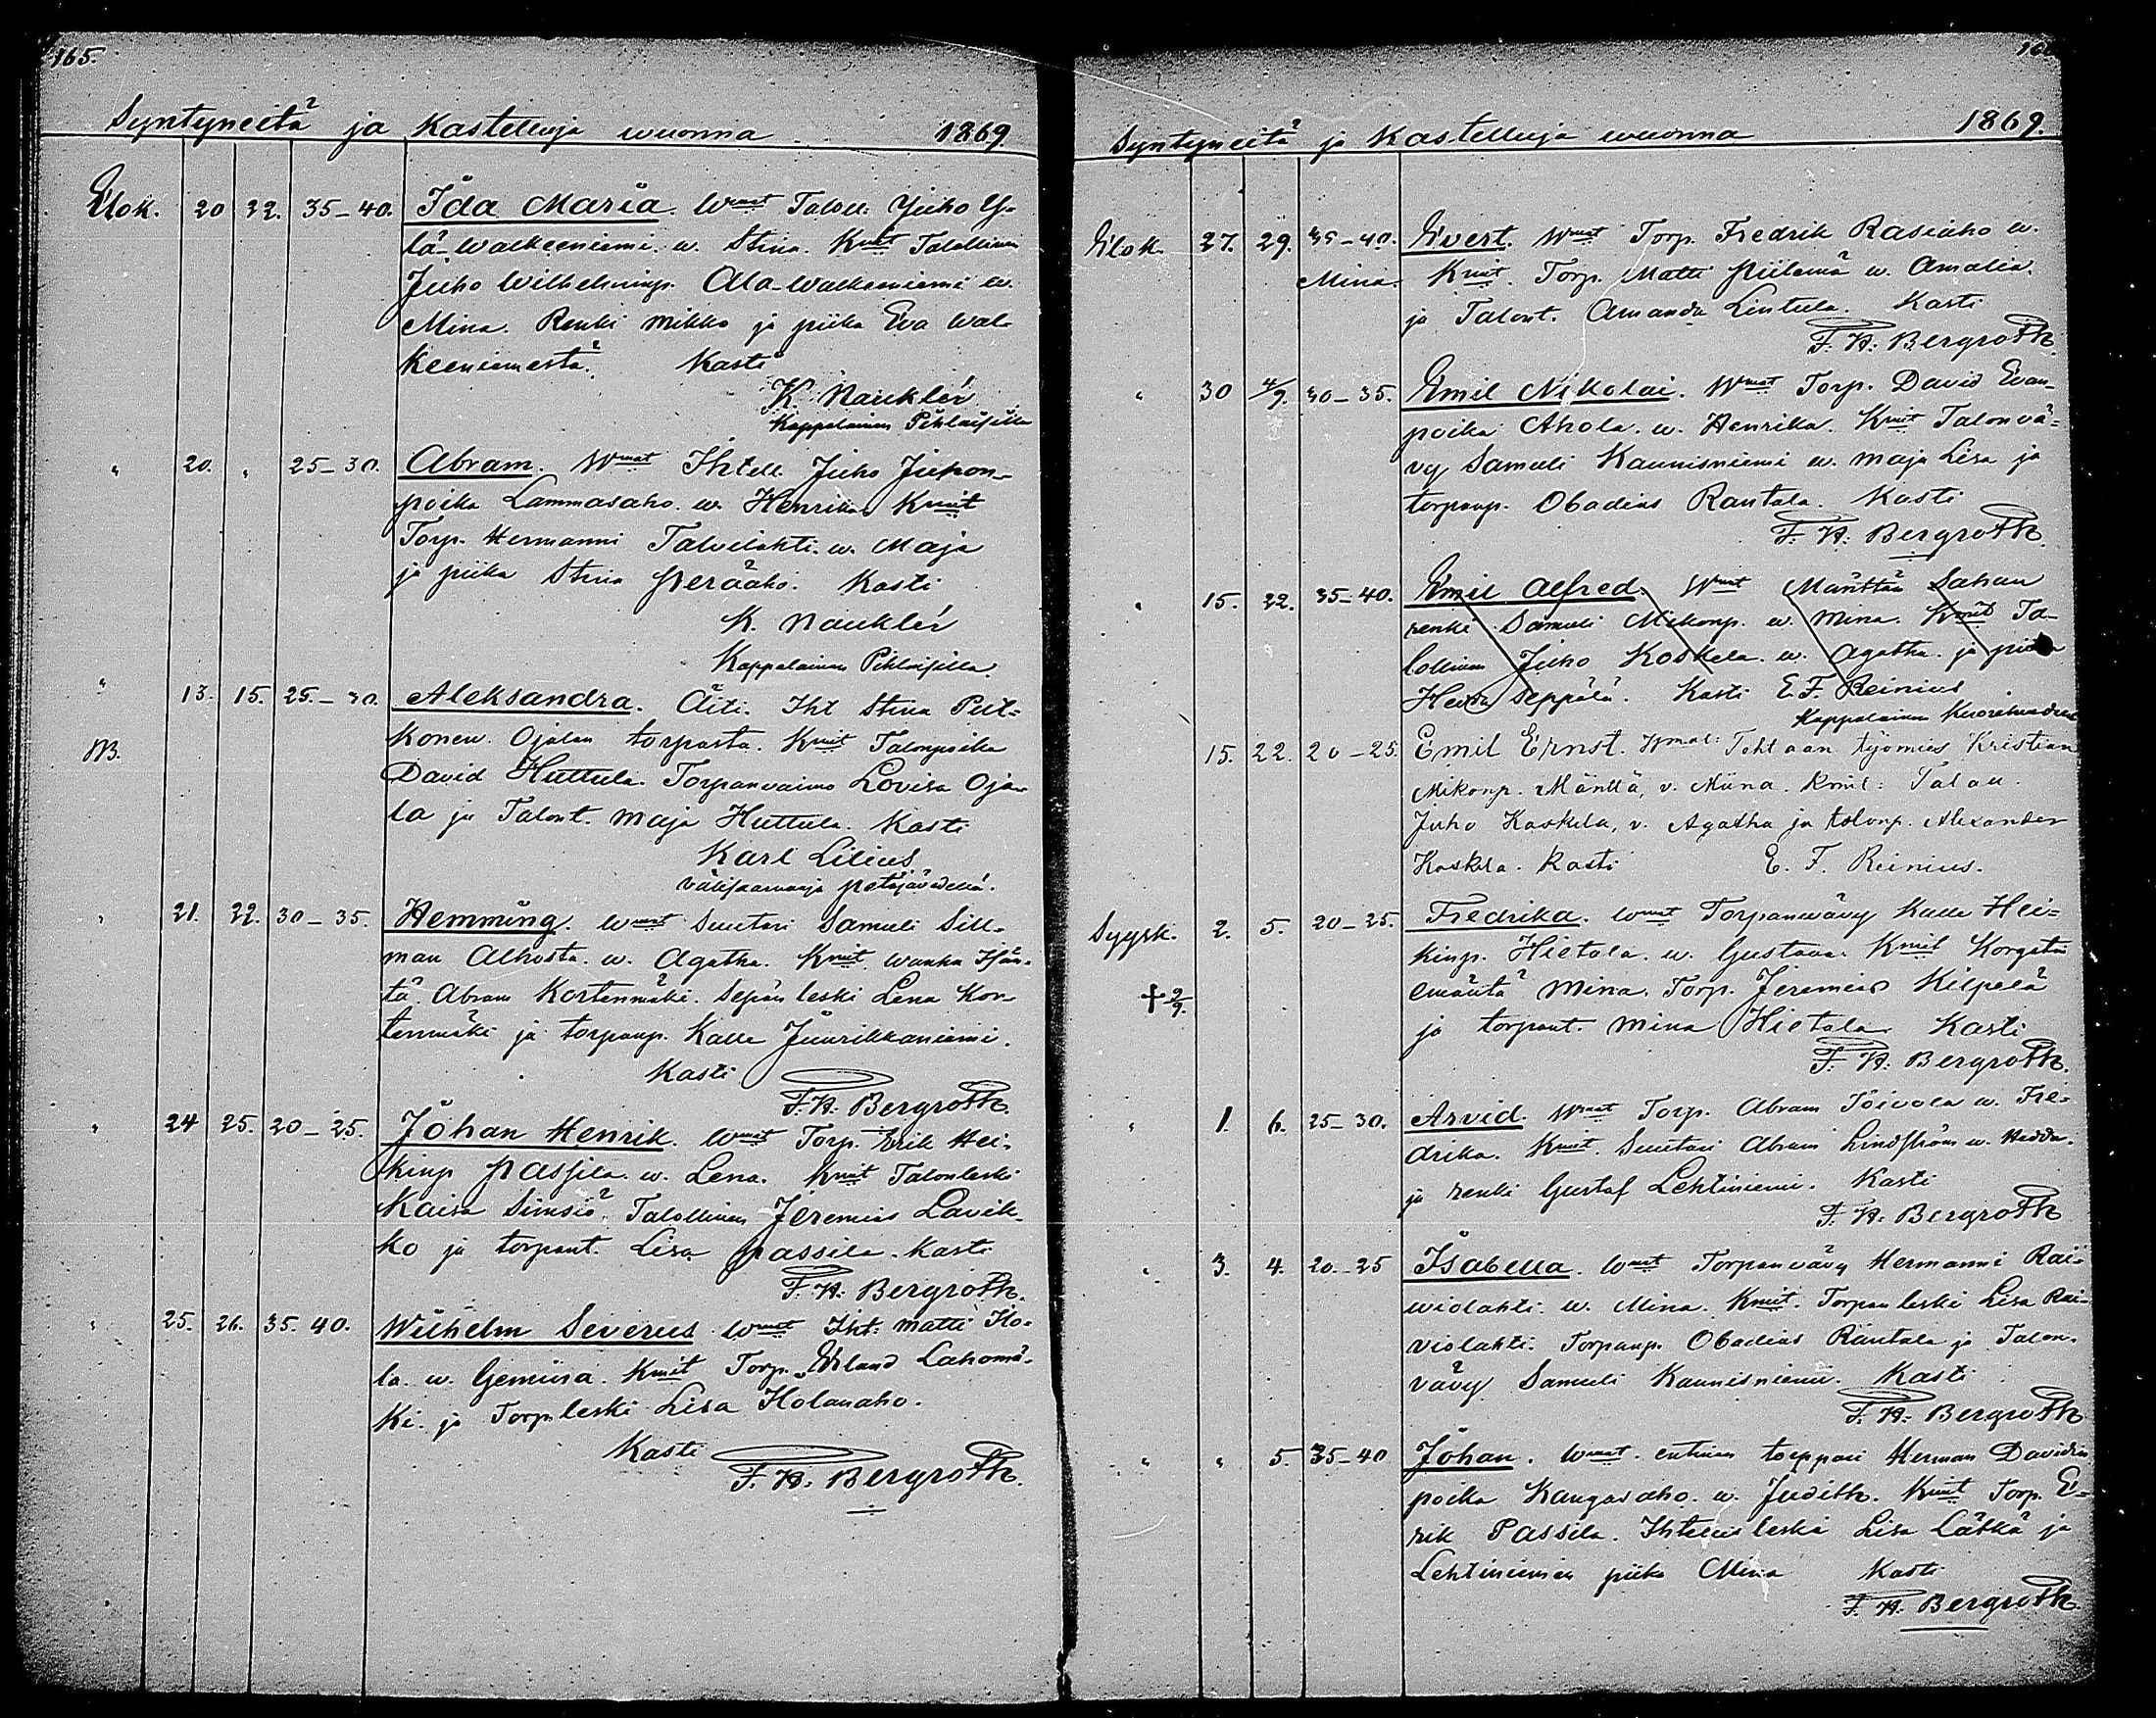 165.
Syntyneitä ja Kastettuja wuonna 1869.
Elok. 20 22. 35-40. Ida Maria. Wmat Taloll: Juho Y-
lä-Walkeeniemi. w. Stina. Kmit Talollinen
Juho Wilhelminp. Ala-Walkeeniemi w.
Mina. Renki Mikko ja piika Eva Wal-
keeniemestä. Kasti
K. Nauklér
Kappalainen Pihlajisilla
" 20. " 25-30. Abram. Wmat Ihtell. Juho Juhon-
poika Lammasaho. w. Henrika. Kmit
Torp. Hermanni Talvilahti. w. Maja
ja piika Stina Peräaho. Kasti
K. Nauklér
Kappalainen Pihlajisilla.
" 13. 15. 25.-30. Aleksandra. Äiti. Iht Stina Pul-
konen. Ojalan torpasta. Kmit Talonpoika
David Huttula. Torpanvaimo Lovisa Oja-
la ja Talont. Maja Huttula. Kasti
Karl Lilius
välisaarnaaja petäjävedellä.
" 21. 22. 30-35. Hemming. Wmat Suutari Samuli Sill-
man Alhosta. w. Agatha. Kmit. Wanha Isän-
tä Abram Kortenmäki. Sepän leski Lena Kor-
tenmäki ja torpanp. Kalle Juurikkaniemi.
Kasti
F. H. Bergroth.
" 24 25. 20-25. Johan Henrik. Wmat Torp. Erik Hei-
kinp Passila. w. Lena. Kmit Talonleski
Kaisa Simsiö. Talollinen Jeremias Lavik-
ko ja torpant. Lisa Passila. Kasti
F. H. Bergroth.
" 25. 26. 35. 40. Wilhelm Severus Wmat Iht: Matti Ho-
la. w. Gemiina. Kmit Torp. Erland Lahomä-
ki. ja Torp. leski Lisa Holanaho.
Kasti
F. H. Bergroth.
Syntyneitä ja Kastettuja wuonna 1869.
Elok. 27. 29. 35-40. Evert. Wmat Torp. Fredrik Rasiaho w.
Mina. Kmit. Torp. Matti Piilemä w. Amalia.
ja Talont. Amanda Lintula. Kasti
F. H. Bergroth.
" 30 4/9. 30-35. Emil Nikolai. Wmat Torp. David Evan-
poika Ahola. w. Henrika. Kmit Talonvä-
vy Samuli Kaunisniemi w. Maja Lisa ja
torpanp. Obadias Rantala. Kasti
F. H. Bergroth.
" 15. 22. 35-40. Emil Alfred. Wmat Mänttän Sahan
renki Samuli Mikonp. w. Mina. Kmit Ta-
lollinen Juho Koskela. w. Agatha. ja
Seppälä. Kasti E. F. Reinius
Kappalainen
15. 22. 20-25. Emil Ernst. Wmat: Tehtaan työmies Kristian
Mikonp. Mänttä, v. Miina. Kmit: Talou.
Juho Koskela, v. Agatha ja talonp. Alexander
Koskela. Kasti E. F. Reinius.
Syysk. 2. 5. 20-25. Fredrika. Wmat Torpanvävy Kalle Hei-
kinp. Hietala. w. Gustava. Kmit Korgatin
emäntä Mina. Torp. Jeremias Kilpelä
+ 2/9. ja torpant. Mina Hietala. Kasti
F. H. Bergroth.
" 1. 6. 25-30. Arvid. Wmat Torp. Abram Toivola w. Fre-
drika. Kmit. Suutari Abram Lindström w. Hedda.
ja renki Gustaf Lehtiniemi. Kasti
F. H. Bergroth
" 3. 4. 20.-25 Isabella. Wmat Torpanvävy Hermanni Rai-
wiolahti. w. Mina. Kmit. Torpan leski Lisa Rai-
violahti. Torpanp. Obadias Rantala ja Talon-
vävy Samuli Kaunisniemi. Kasti
F. H. Bergroth
" " 5. 35-40 Johan. Wmat. entinen torppari Herman Davidin
poika Kangasaho. w. Judith. Kmit Torp. E-
rik Passila. Ihtellis leski Lisa Lätkä ja
Lehtiniemen piika Mina Kasti
F. H. Bergroth